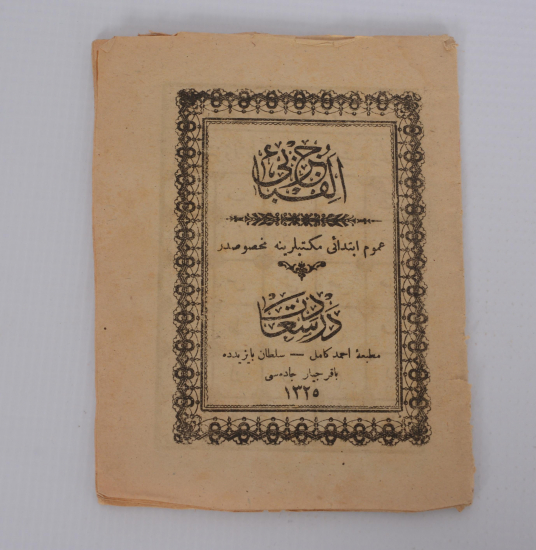 الفبای جزئی
عموم ابتدائی مکتبلرینه مخصوصدر
درسعادت
مطبعهٔ احمد کامل — سلطان بایزیدده
باقرجیلر جاده‌سی
١٣٢٥